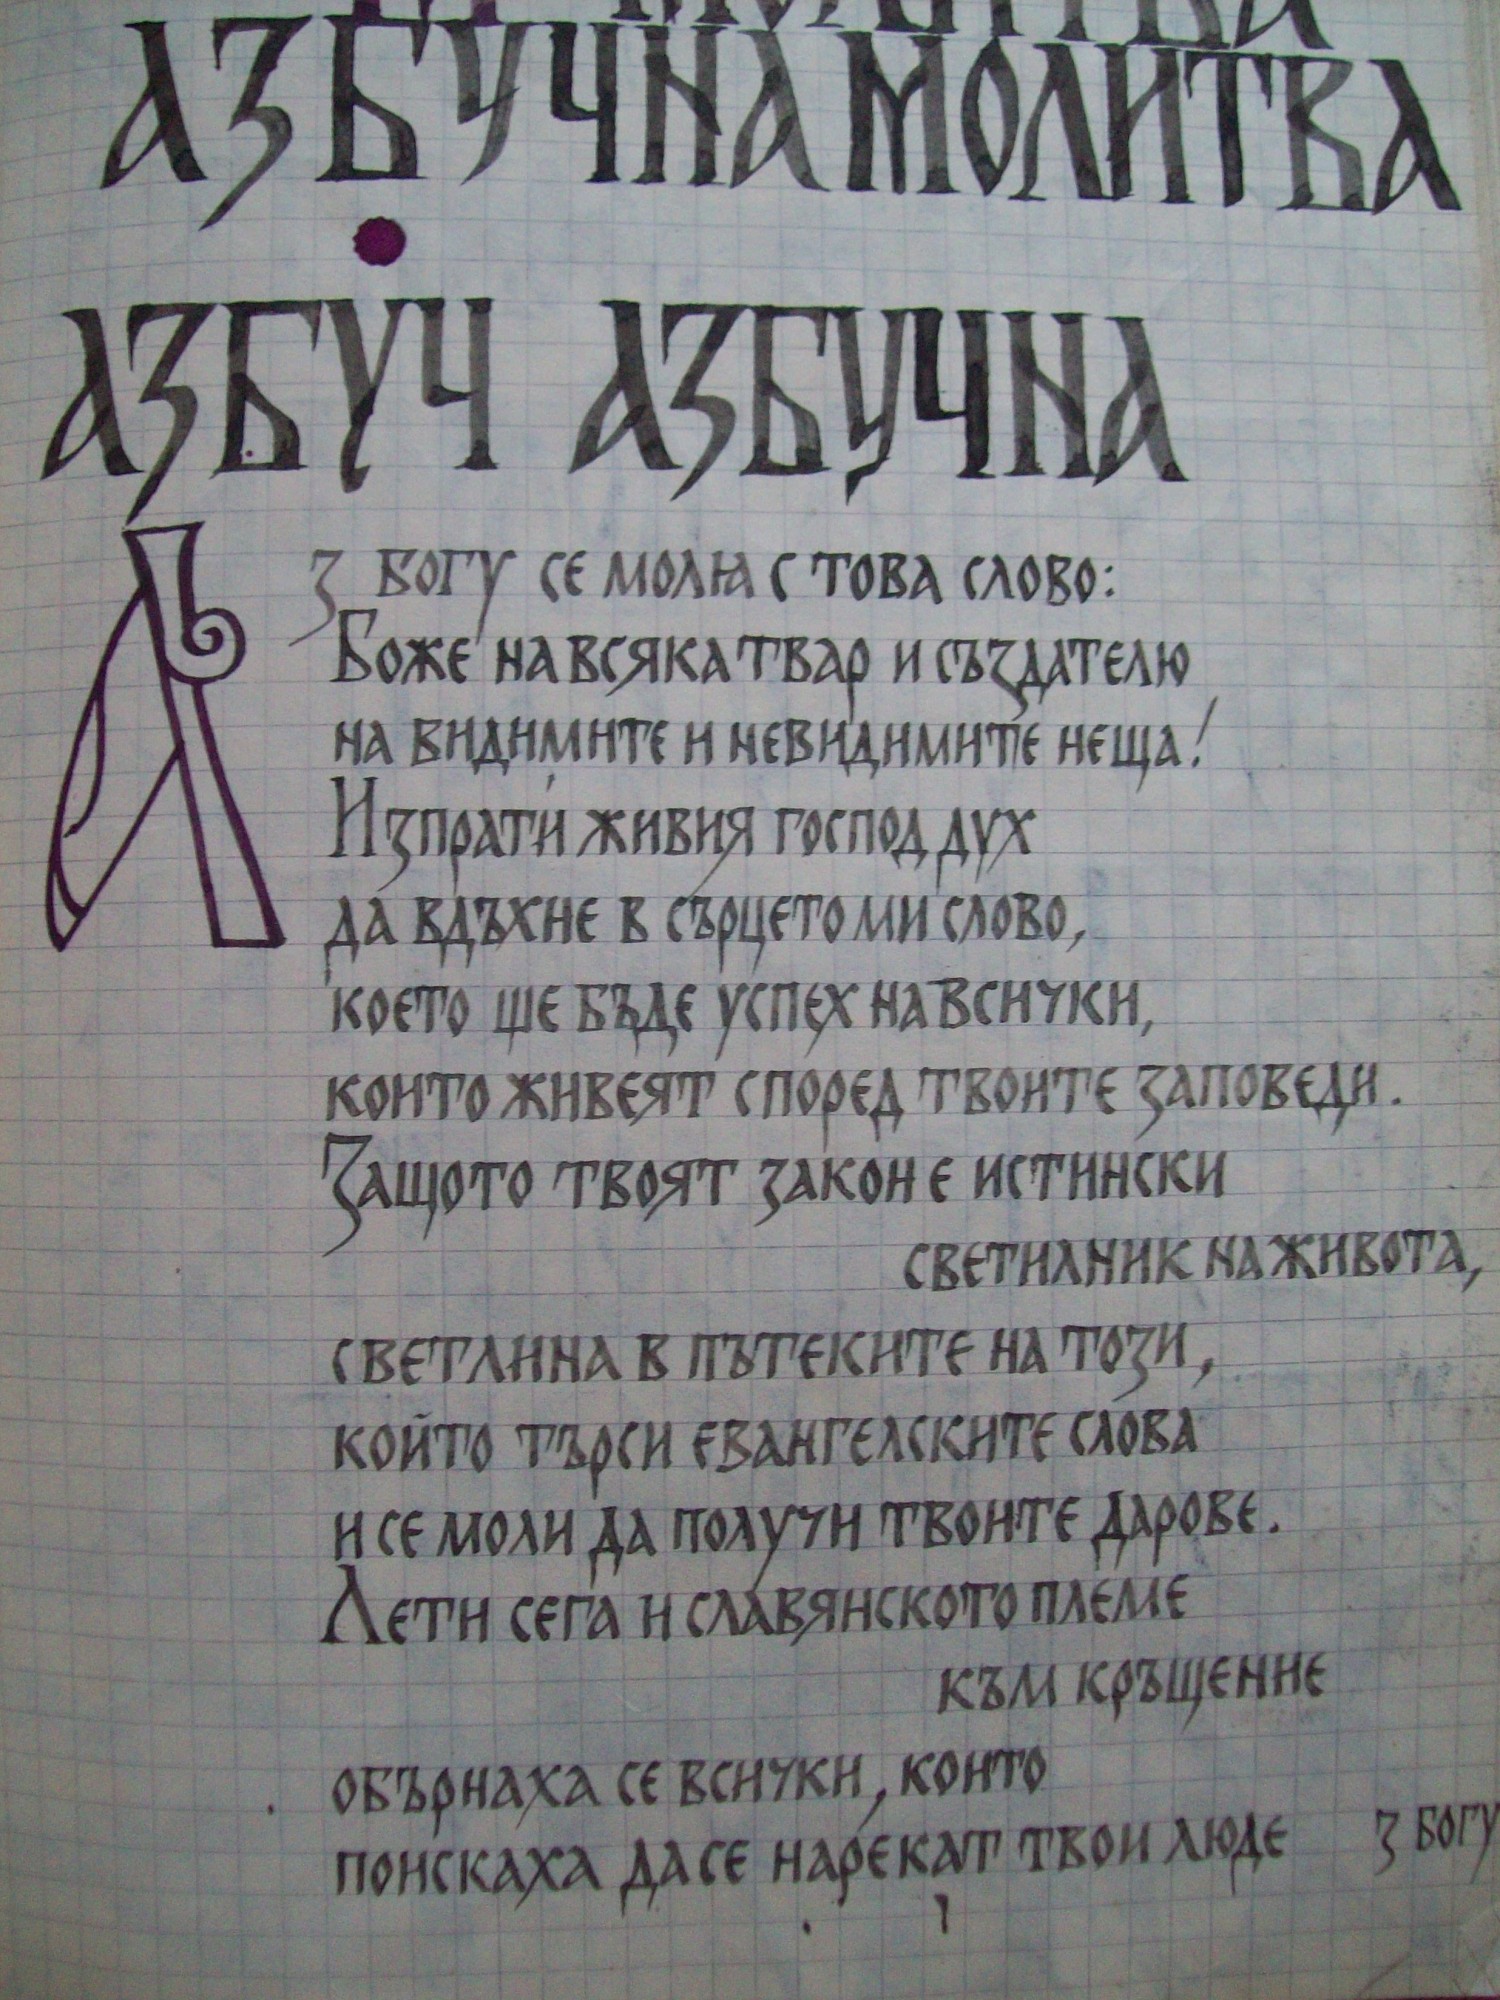 МОЛИТВА
АЗБУЧНА МОЛИТВА
АЗБУЧ АЗБУЧНА
Аз Богу се молѩ с това слово:
Боже на всяка твар и създателю
на видимите и невидимите неща!
Изпрати живия господ дух
да вдъхне в сърцето ми слово,
което ще бъде успех на всички,
които живеят според твоите заповеди.
Защото твоят закон е истински
светилник на живота,
светлина в пътеките на този,
който търси евангелските слова
и се моли да получи твоите дарове.
Лети сега и славянското племе
към кръщение
обърнаха се всички, които
поискаха да се нарекат твои люде
з Богу